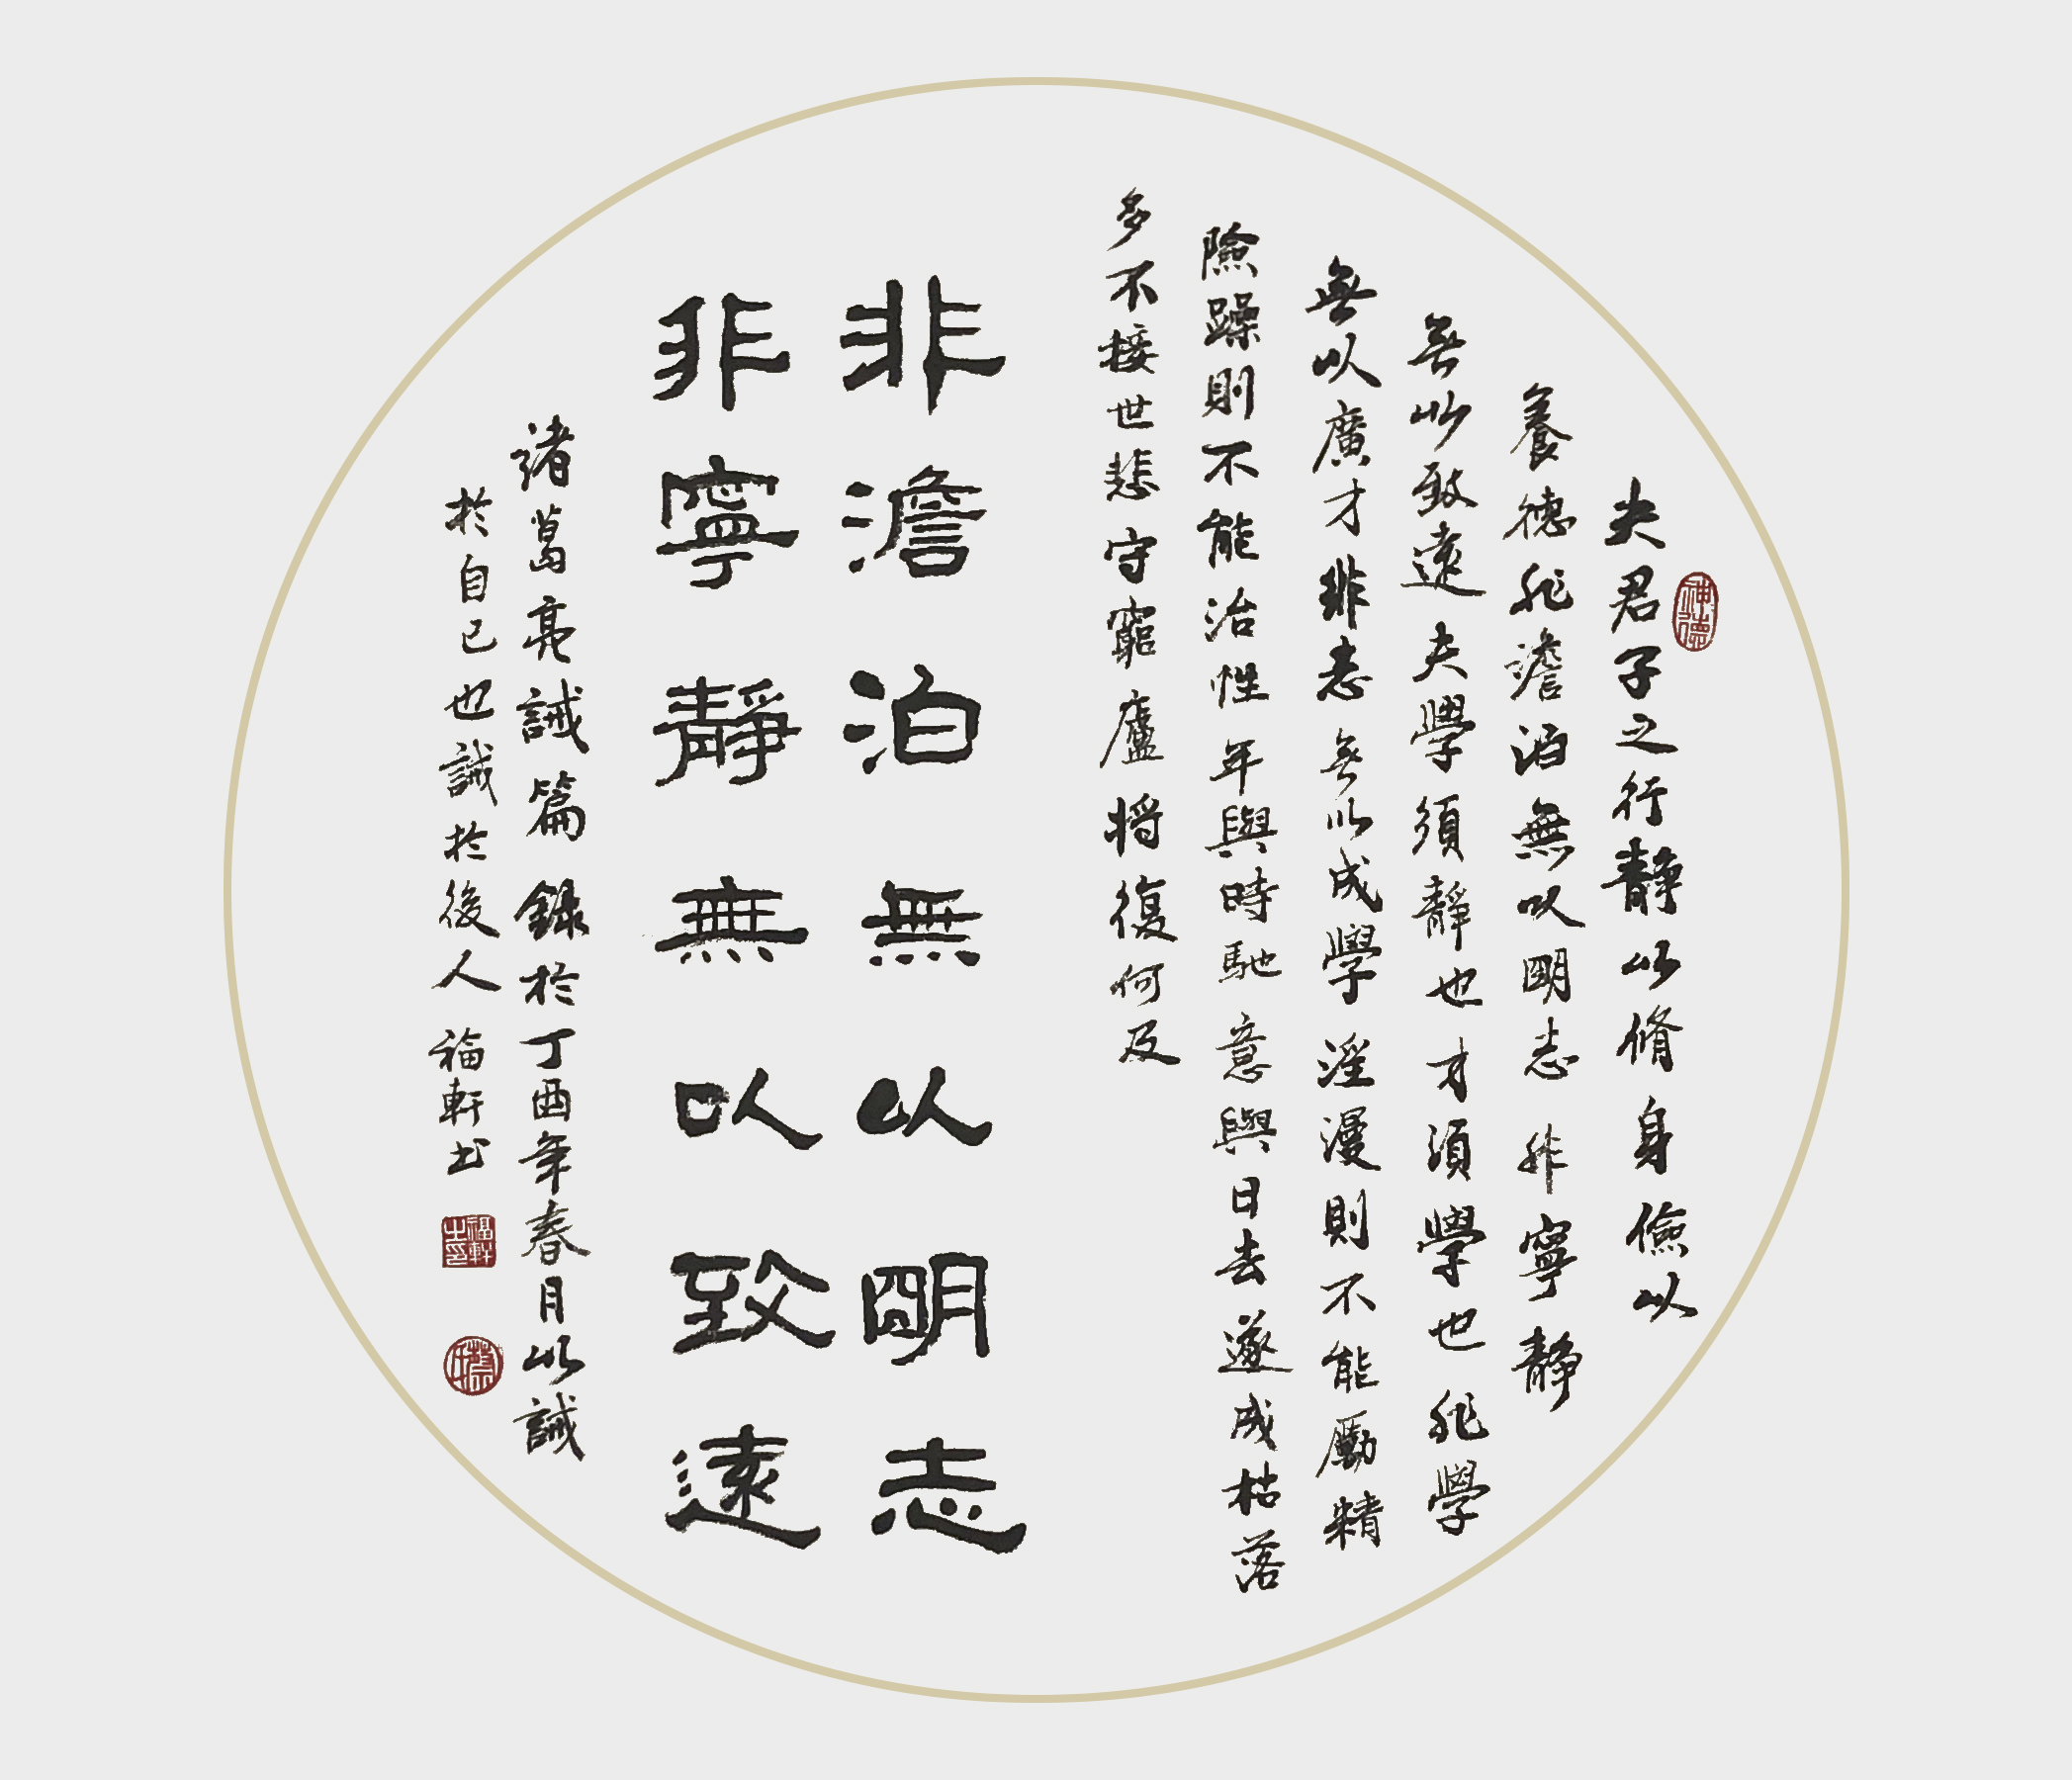 夫君子之行靜以脩身儉以
養德非澹泊無以明志非寧靜
無以致遠夫學須靜也才須學也非學
無以廣才非志無以成學淫漫則不能勵精
險躁則不能治性年與時馳意與日去遂成枯落
多不接世悲守窮廬將復何及
非澹泊無以明志
非寧靜無以致遠
諸葛亮誡篇錄於丁酉年春月以誡
於自己也誡於後人福軒书
神德
福軒之印